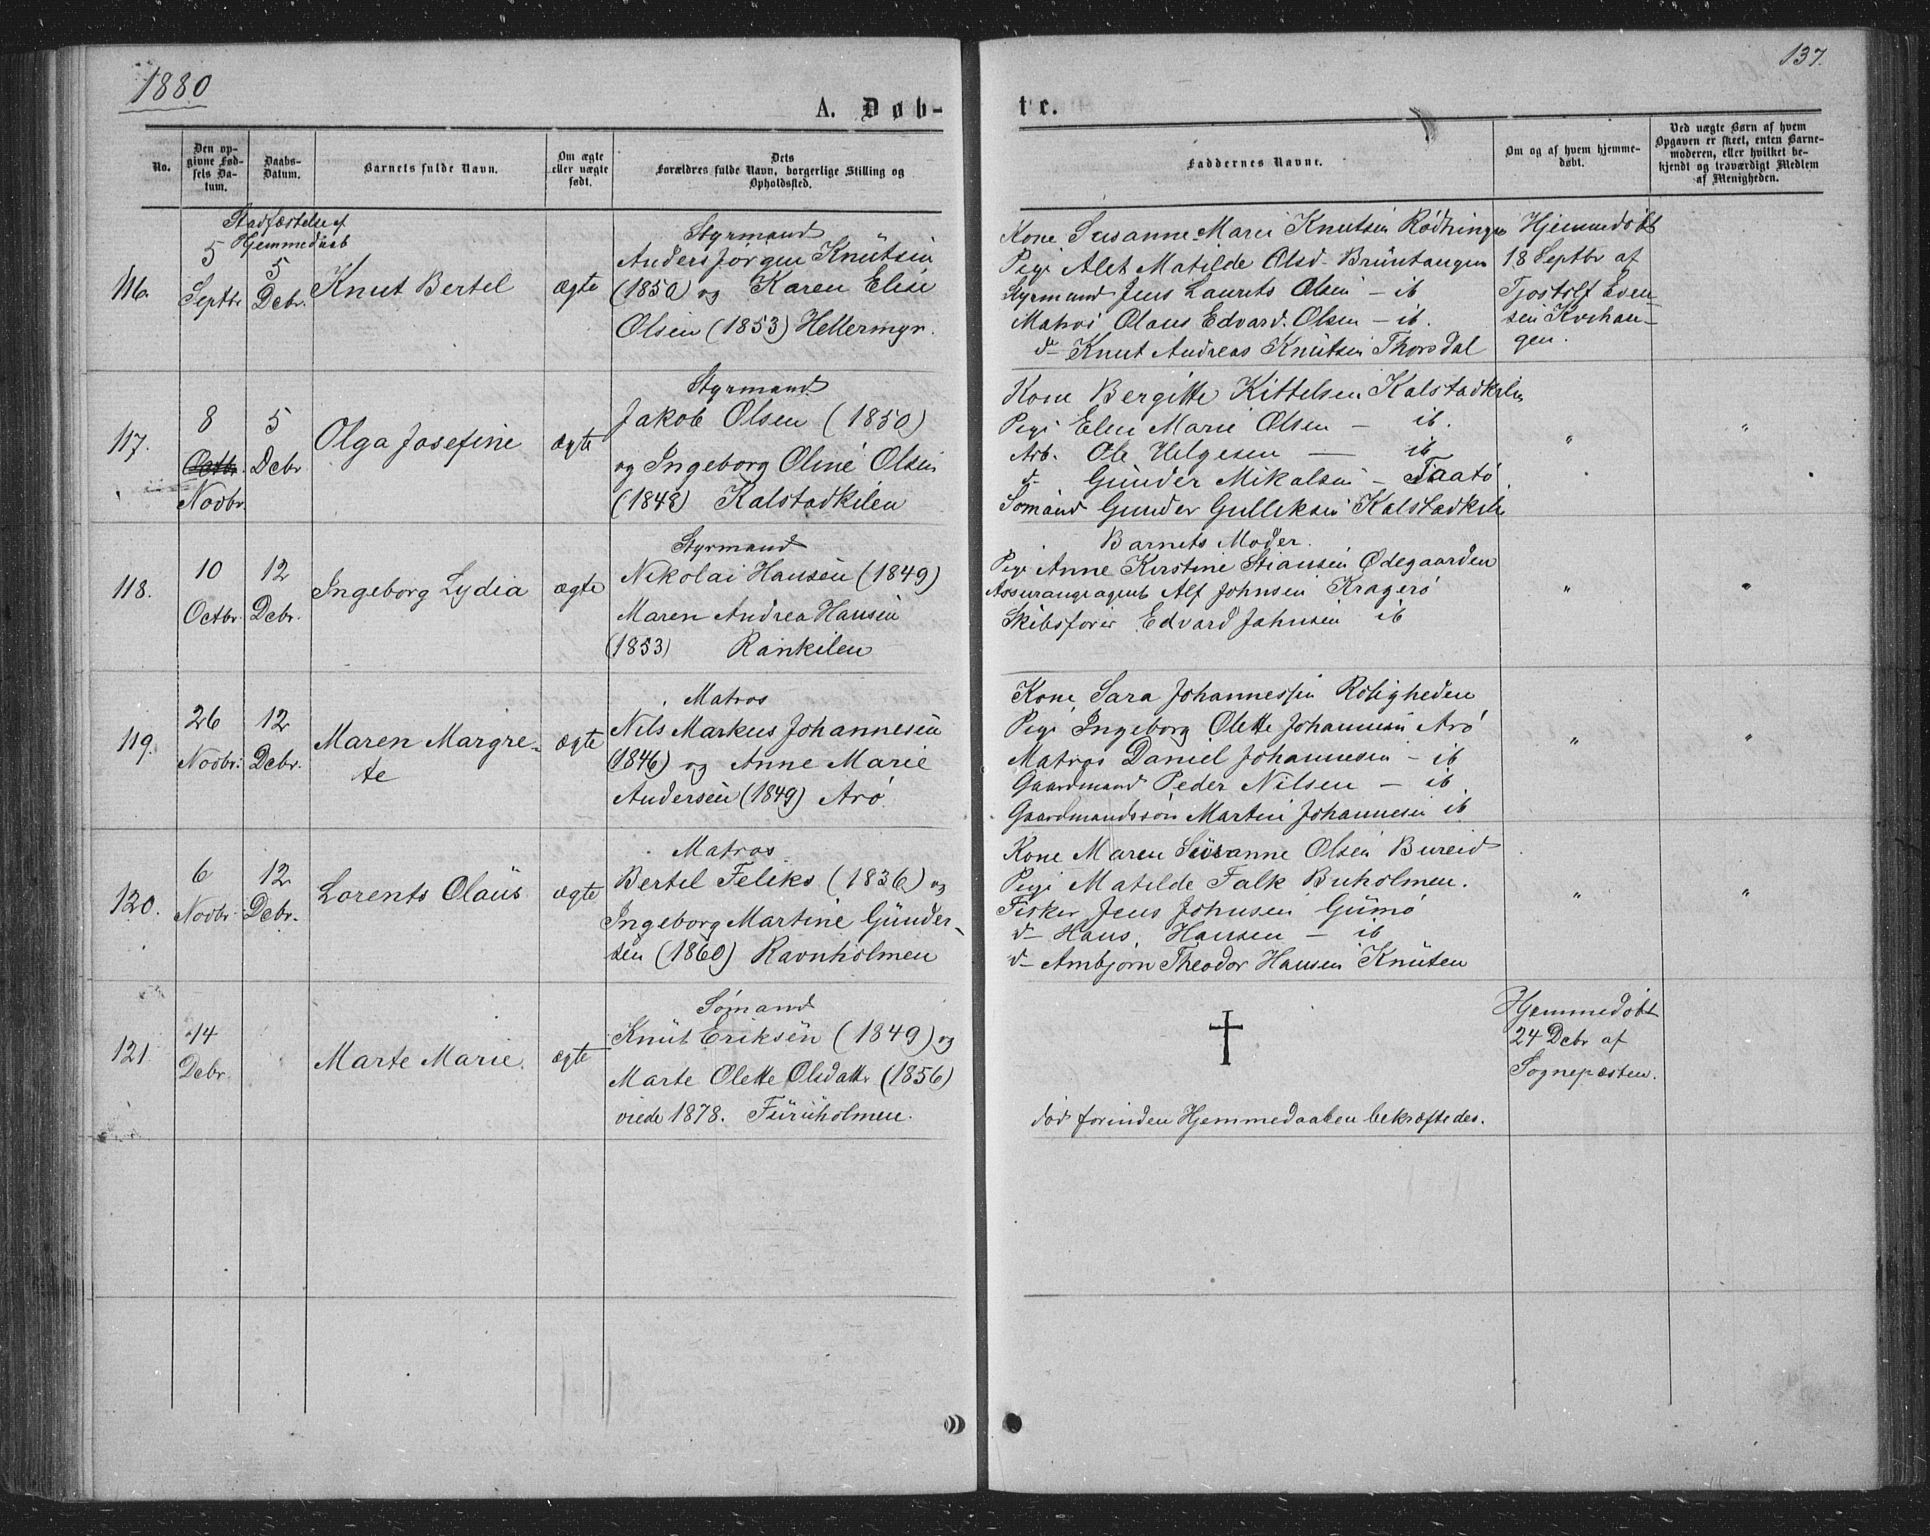 1880
137.
A. Døb-
te.
No.
Den op-
givne Fød-
sels Da-
tum.
Daabs-
Datum.
Barnets fulde Navn.
Om ægte
eller uægte
født.
Dets
Forældres fulde Navn, borgerlige Stilling og
Opholdssted.
Faddernes Navne.
Om og af hvem hjemme-
døbt.
Ved uægte Børn af hvem
Opgaven er skeet, enten Barne-
moderen, eller hvilket be-
kjendt og troværdigt Medlem
af Menigheden.
Stadfæstelse af
Hjemmedaab
116.
5
Septbr
5
Dcbr.
Knut Bertel
ægte
Styrmand
Anders Jørgen Knutsen
(1850) og Karen Elise
Olsen (1853) Hellermyr.
Kone Susanne Marie Knutsen Rødtingen
Pige Alet Matilde Olsd. Bruntangen
Styrmand Jens Laurits Olsen – ib
Matros Olaus Edvard Olsen – ib.
d– Knut Andreas Knutsen Thorsdal
Hjemmedøbt
18 Septbr af
Tjostolf Even-
sen
gen.
117.
8
Octbr.
Novbr.
5
Dcbr
Olga Josefine
ægte
Styrmand
Jakob Olsen (1850)
og Ingeborg Oline Olsen
(1848) Kalstadkilen
Kone Bergitte Kittelsen Kalstadkilen
Pige Elen Marie Olsen – ib.
Arb. Ole Helgesen — ib
d– Gunder Mikalsen – Taatø.
Sømand Gunder Gulleksen Kalstadkile
"
"
118.
10
Octbr.
12
Dcbr.
Ingeborg Lydia
ægte
Styrmand
Nikolai Hansen (1849)
Maren Andrea Hansen
(1853) Rankilen
Barnets Moder.
Pige Anne Kirstine Stiansen Ødegaarden
Assuranceagent Alf Johnsen Kragerø
Skibsfører Edvard Johnsen ib
"
"
119.
26
Novbr.
12
Dcbr.
Maren Margre-
te
ægte
Matros
Nils Markus Johannesen
(1846) og Anne Marie
Andersen (1849) Arø
Kone Sara Johannessen Roligheden
Pige Ingeborg Olette Johannesen Arø
Matros Daniel Johannesen – ib
Gaardmand Peder Nilsen – ib
Gaardmandssøn Martin Johannesen ib
"
"
120.
6
Novbr.
12
Dcbr.
Lorents Olaus
ægte
Matros
Bertel Feliks (1836) og
Ingeborg Martine Gunder-
sen (1860) Ravnholmen
Kone Maren Susanne Olsen Bureid
Pige Matilde Falk Buholmen.
Fisker Jens Johnsen Gumø
d– Hans Hansen – ib
d– Ambjørn Theodor Hansen Knuten
"
"
121.
14
Dcbr.
Marte Marie.
ægte
Sømand
Knut Eriksen (1849) og
Marte Olette Olsdattr (1856)
viede 1878. Furuholmen.
†
død forinden Hjemmedaaben bekræftedes.
Hjemmedøbt
24 Dcbr af
Sognepræsten.